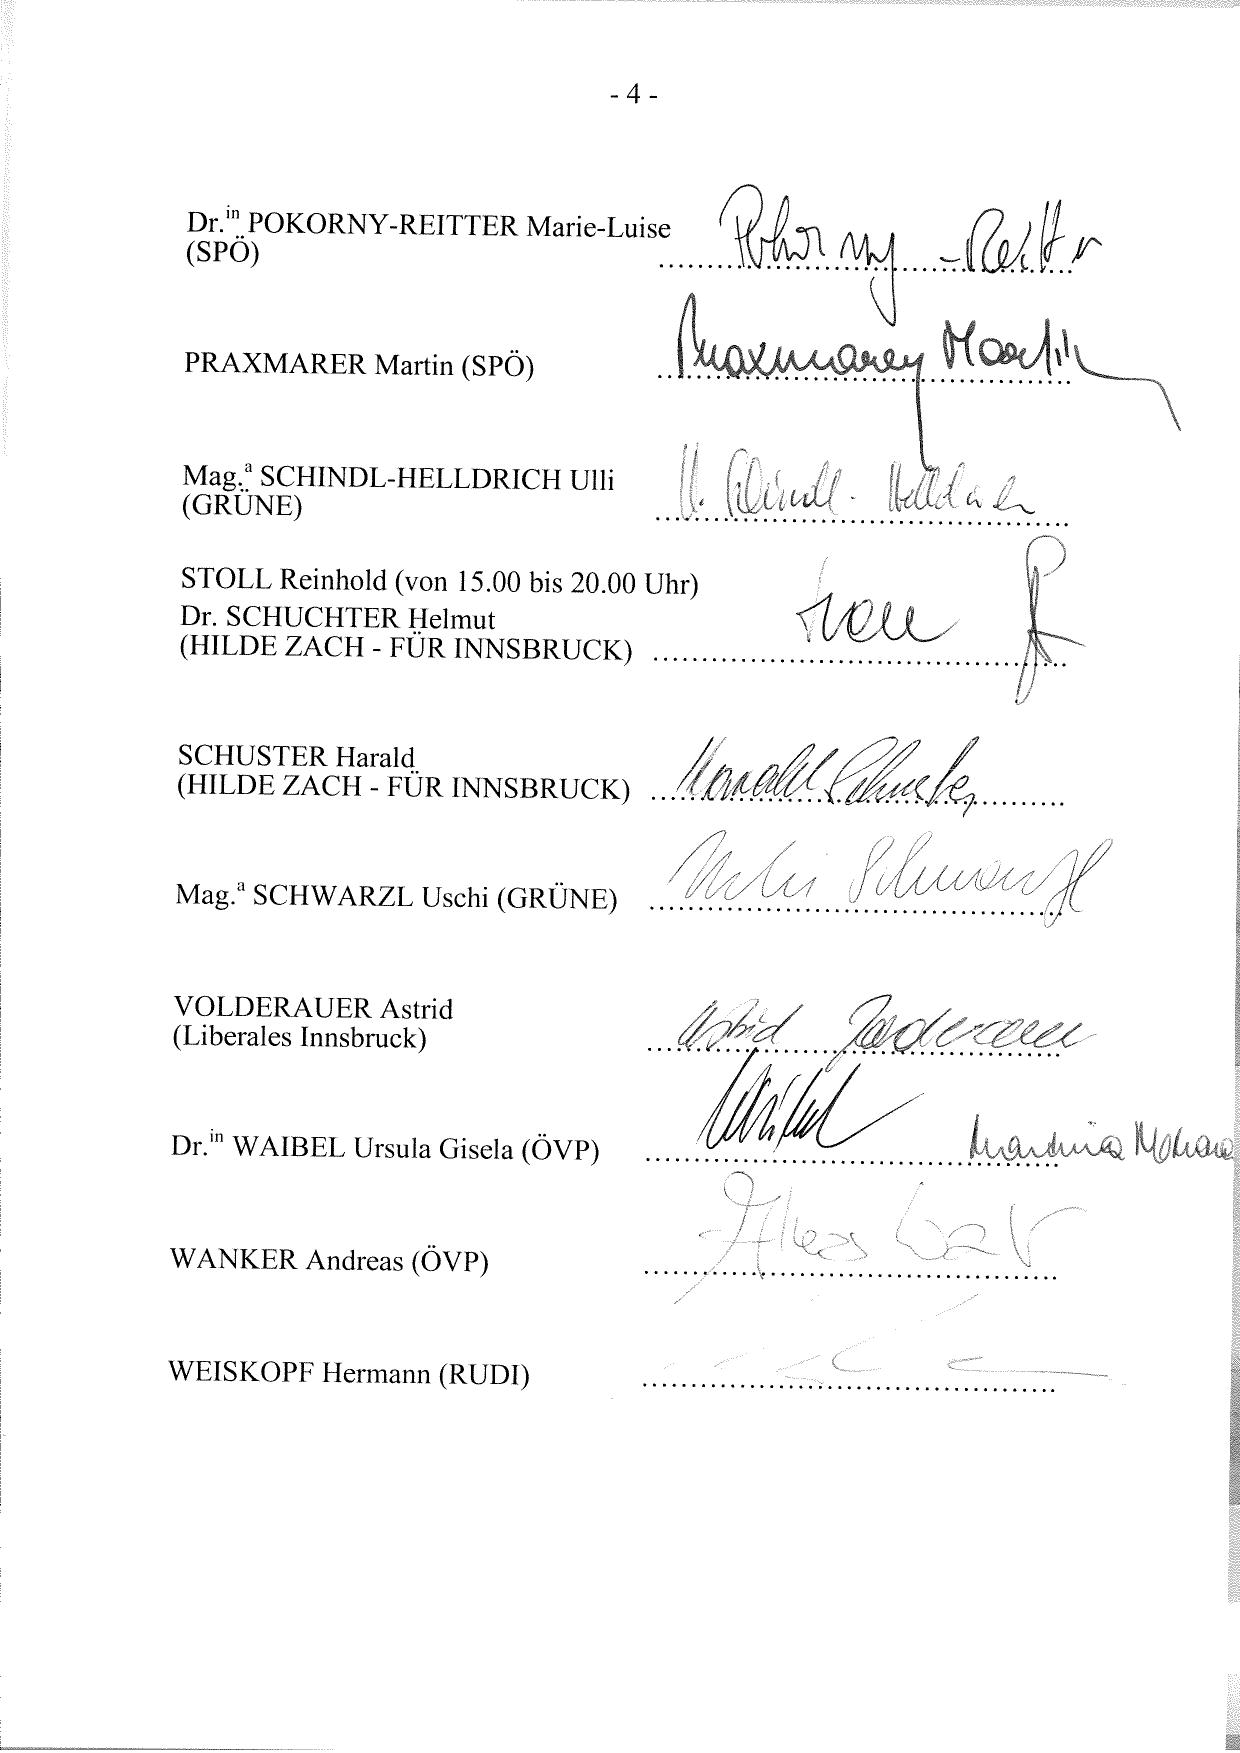 - 4 -
Dr.in POKORNY-REITTER Marie-Luise Pokorny-Reitter
(SPÖ) ..........................................
PRAXMARER Martin (SPÖ) Praxmarer Martin
Mag.a SCHINDL-HELLDRICH Ulli U. Schindl-Helldrich
(GRÜNE) ..........................................
STOLL Reinhold (von 15.00 bis 20.00 Uhr) Stoll
Dr. SCHUCHTER Helmut
(HILDE ZACH - FÜR INNSBRUCK) ..........................................
SCHUSTER Harald
(HILDE ZACH - FÜR INNSBRUCK) Harald Schuster
Mag.a SCHWARZL Uschi (GRÜNE) Uschi Schwarzl
VOLDERAUER Astrid
(Liberales Innsbruck) Astrid Volderauer
Dr.in WAIBEL Ursula Gisela (ÖVP) Waibel Martina
WANKER Andreas (ÖVP) ..........................................
WEISKOPF Hermann (RUDI) ..........................................